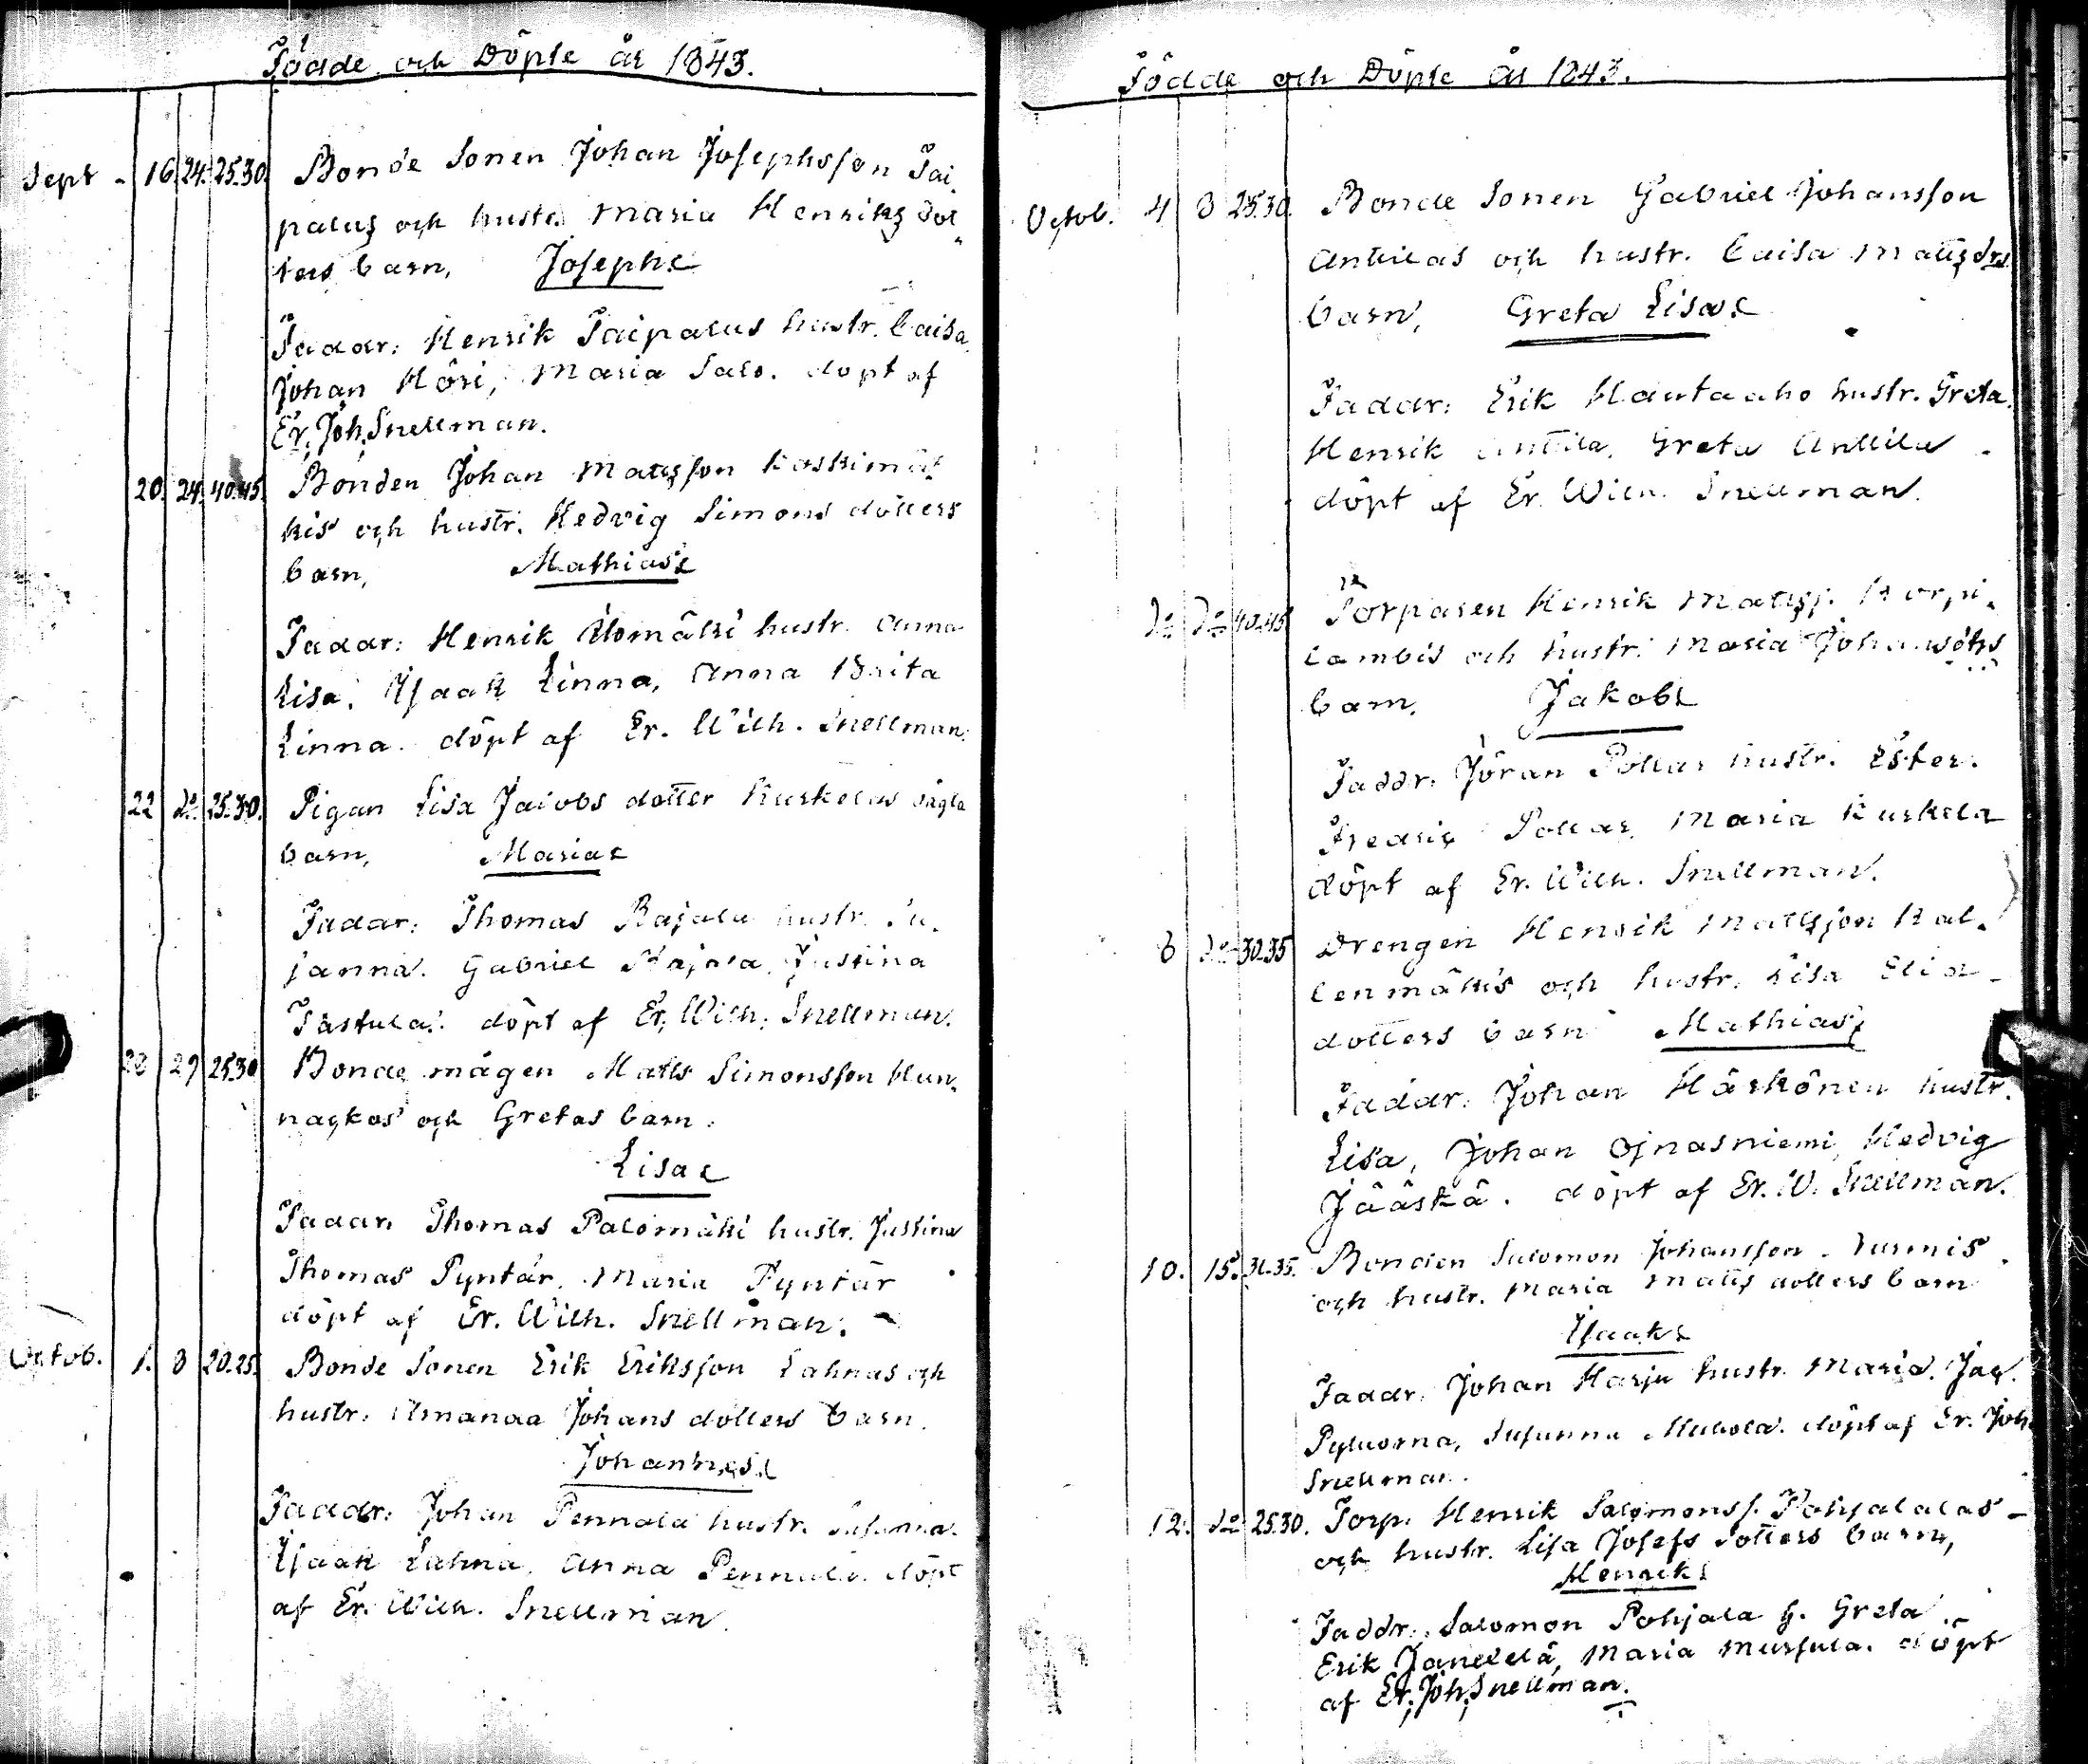 Födde och Döpte år 1843.
Sept - 16. 24. 25.30. Bonde Sonen Johan Josephsson Tai„
palus och hustr. Maria Henriks dot„
ters barn, Joseph
Faddr: Henrik Taipalus hustr. Caisa
Johan Höri, Maria Salo. döpt af
Er. Joh. Snellman.
20. 24. 40.45. Bonden Johan Matsson Koskimä
kis och hustr. Hedvig Simons dotters
barn, Mathias
Faddr: Henrik Ilomäki hustr. Anna
Lisa. Isaak Linna, Anna Brita
Linna. döpt af Er. Wilh. Snellman.
22 do 25.30. Pigan Lisa Jacobs dotter Kurkelas oägta
barn, Maria
Faddr: Thomas Rajala hustr. Su„
sanna. Gabriel Rajala, Justina
Tastula. döpt af Er. Wilh. Snellman.
28 29 25.30 Bonde mågen Matts Simonsson Hun„
nackos och Gretas barn.
Lisa
Faddr. Thomas Palomäki hustr. Justina
Thomas Pyntär, Maria Pyntär
döpt af Er. Wilh. Snellman.
Octob. 1. 8 20.25. Bonde Sonen Erik Eriksson Lahnas och
hustr. Amanda Johans dotters barn.
Johannes
Faddr: Johan Pennala hustr. Susanna.
Isaak Lahna, Anna Pennala. döpt
af Er. Wilh. Snellman.
Födde och Döpte år 1843.
Octob. 4 8 25.30. Bonde Sonen Gabriel Johansson
Antilas och hustr. Caisa Matsdrs
barn, Greta Lisa
Faddr: Erik Hautaaho hustr. Greta.
Henrik Antila, Greta Antila
döpt af Er. Wilh. Snellman.
do do 40.45 Torparen Henrik Matss. Korpi„
lambis och hustr. Maria Johansdtrs
barn. Jakob
Faddr. Jöran Pollar hustr. Ester.
Fredric Pollar, Maria Kurkela
döpt af Er. Wilh. Snellman.
8 do 30.35 Drengen Henrik Mattsson Kal„
lenmäkis och hustr. Lisa Elia
dotters barn Mathias
Faddr: Johan Härkönen hustr.
Lisa, Johan Ojnasniemi, Hedvig
Jääskä. döpt af Er. W. Snellman.
10. 15. 30.35. Bonden Salomon Johansson Nurmis
och hustr. Maria Mats dotters barn
Isaak
Faddr. Johan Harju hustr. Maria. Jac.
Susanna döpt af Er. Joh.
Snellman.
12. do 25.30. Torp. Henrik Salomonss. Pohjalalas
och hustr. Lisa Josefs dotters barn,
Henrik
Faddr. Salomon Pohjala h. Greta
Erik Maria döpt
af Er. Joh. Snellman.